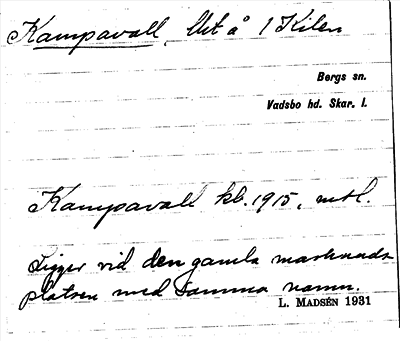 Kampavall, Utå 1 Kilen
Bergs sn.
Vadsbo hd. Skar. l.
Kampavall kb. 1915, mtl.
Ligger vid den gamla marknads
platsen med samma namn.
L. MADSÉN 1931